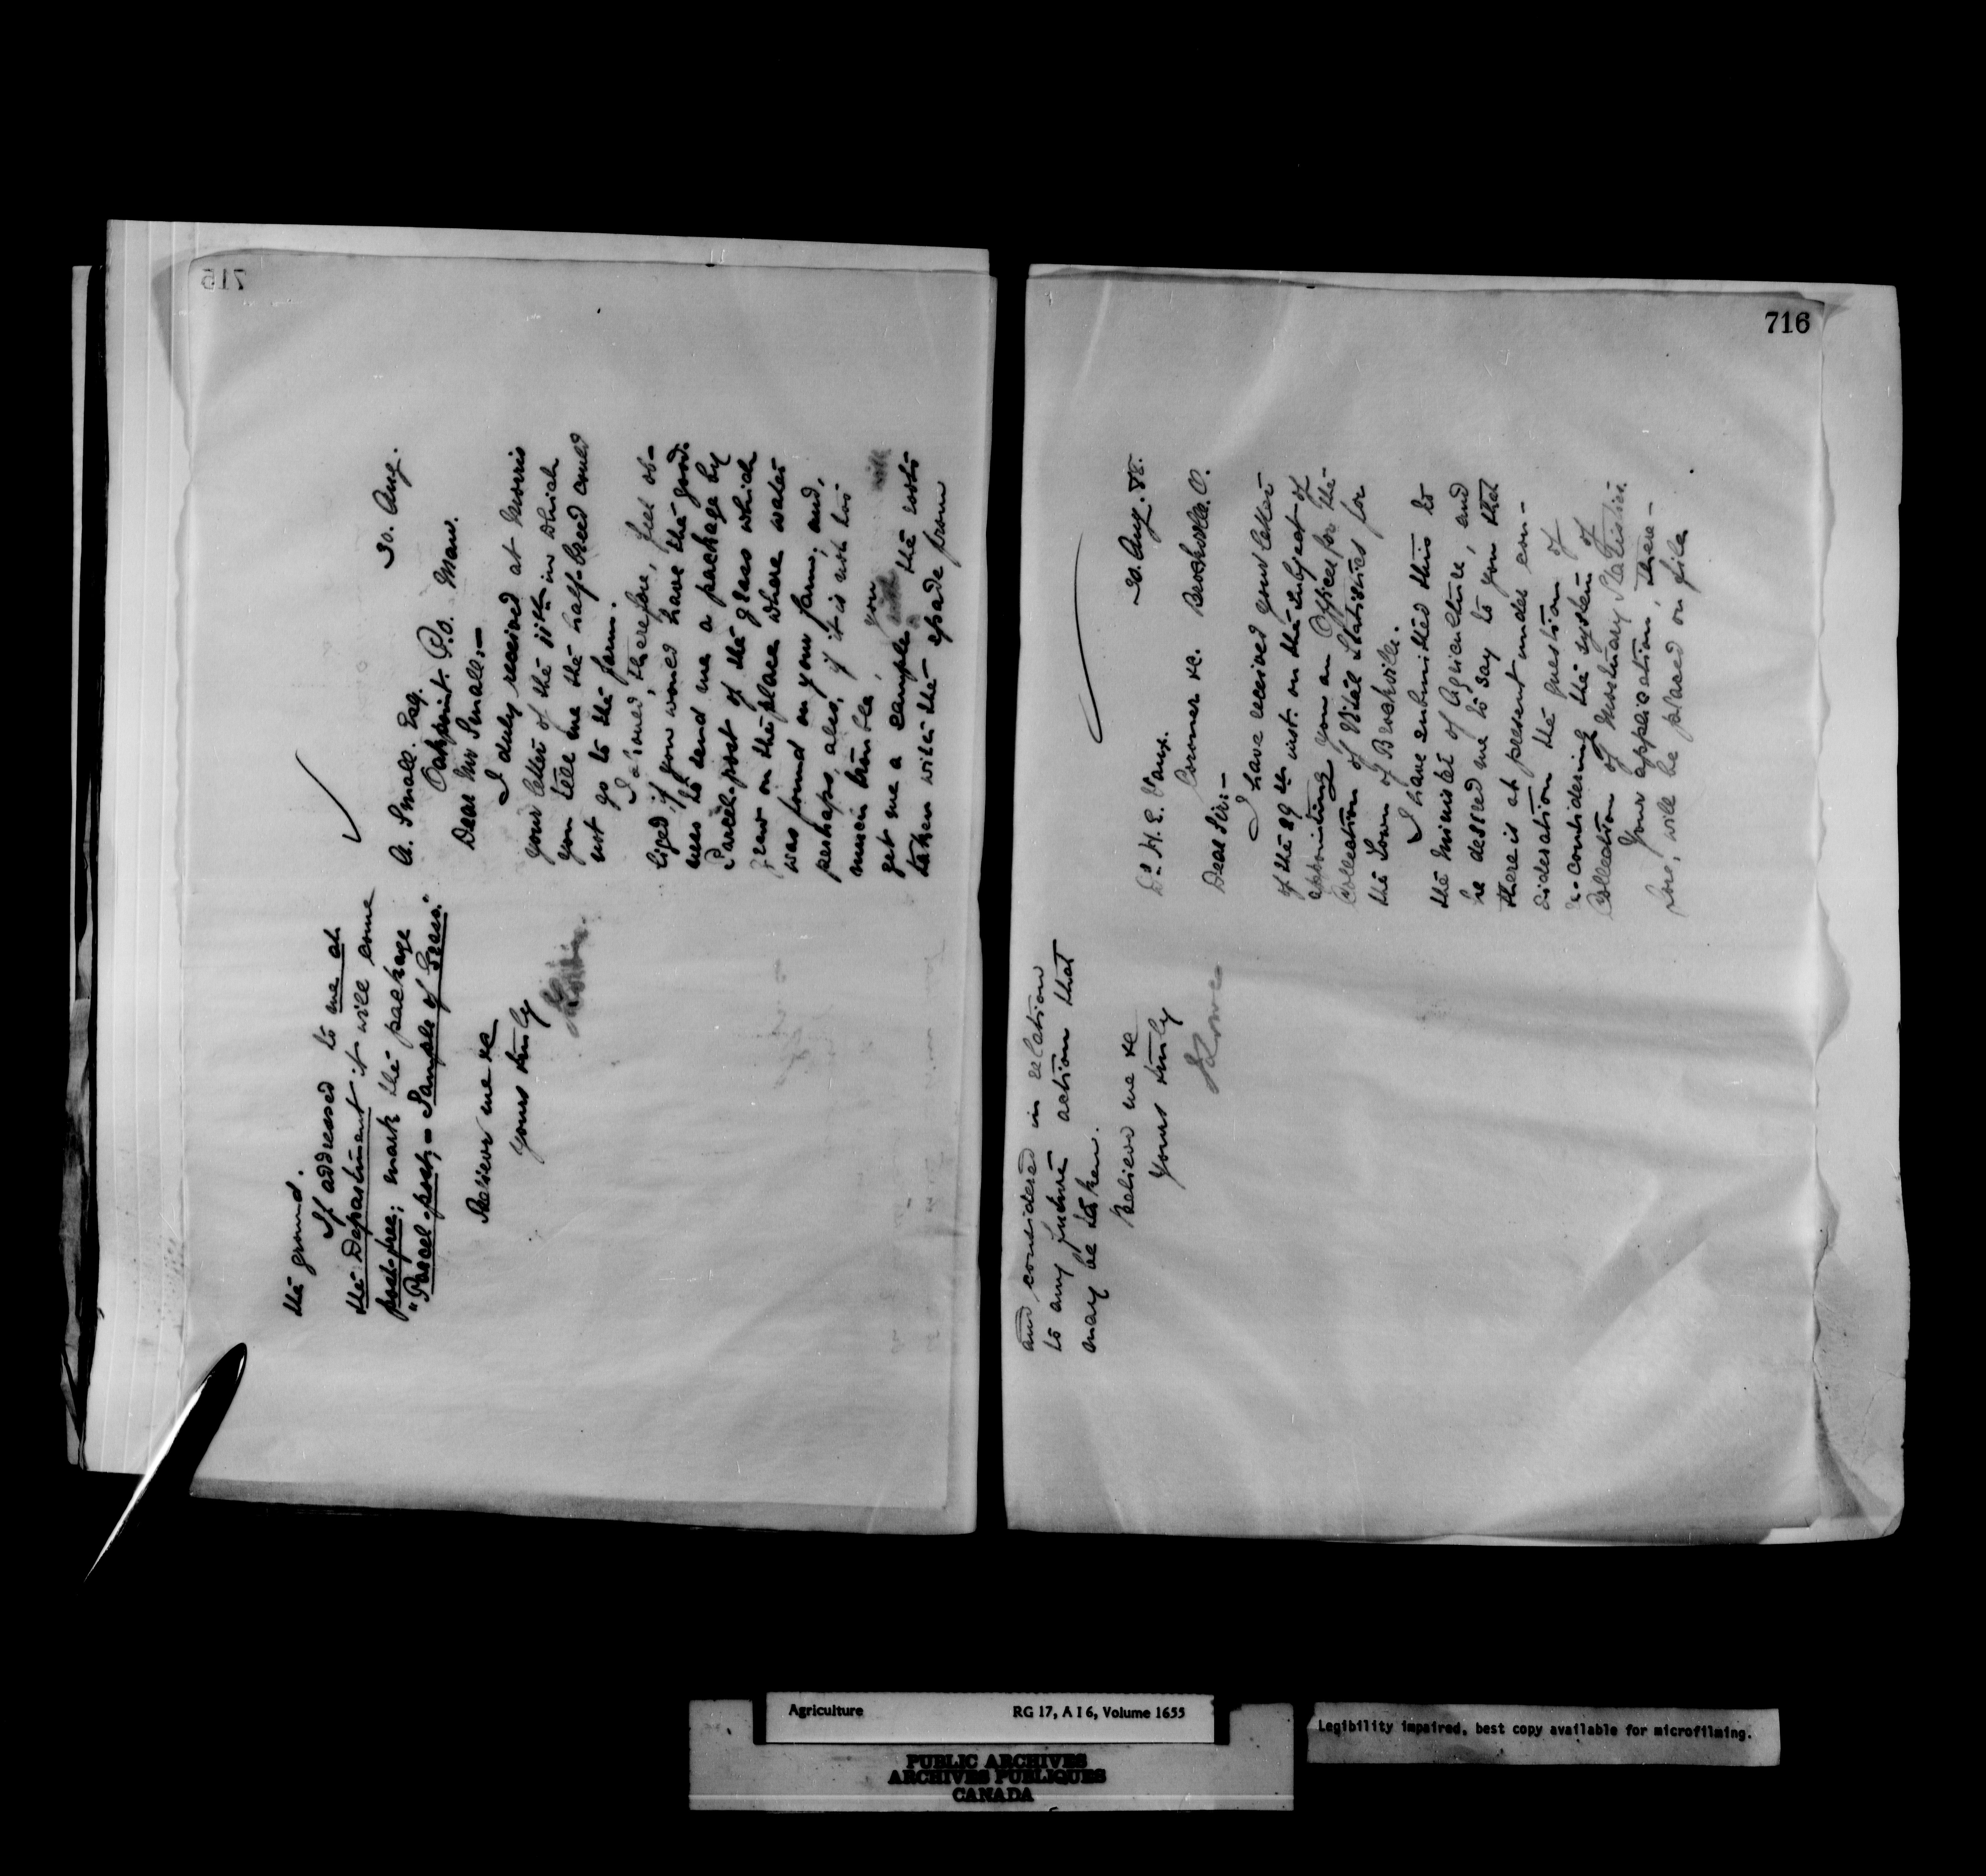 715
30. Aug.
A. Small. Esq.
Oakpoint. P.O. Man.
Dear Mr Small:—
I duly received at Morris
your letter of the 11th in which
you tell me the half-breed could
not go to the farm.
I should, therefore, feel ob-
liged if you would have the good-
ness to send me a package by
Parcel-post of the grass which
grew on the place where water
was found on your farm; and,
perhaps, also, if it is not too
much trouble, you will
get me a sample with the roots
taken with the spade from
the ground.
If addressed to me at
the Department it will come
post-free; mark the package
"Parcel-post,— Sample of Grass."
Believe me &c
yours truly
716
30. Aug. 88.
Dr. H. E.
Coroner &c. Brockville. O.
Dear Sir:—
I have received your letter
of the 29th inst. on the subject of
appointing you an Officer for the
Collection of Vital Statistics for
the Town of Brockville.
I have submitted this to
the Minister of Agriculture, and
he desired me to say to you that
there is at present under con-
sideration the question of
re-considering the system of
Collection of Mortuary Statistics.
Your application, there-
fore, will be placed on file
and considered in relation
to any future action that
may be taken.
Believe me &c
yours truly
JLowe
Agriculture RG 17, A I 6, Volume 1655
PUBLIC ARCHIVES
ARCHIVES PUBLIQUES
CANADA
Legibility impaired, best copy available for microfilming.